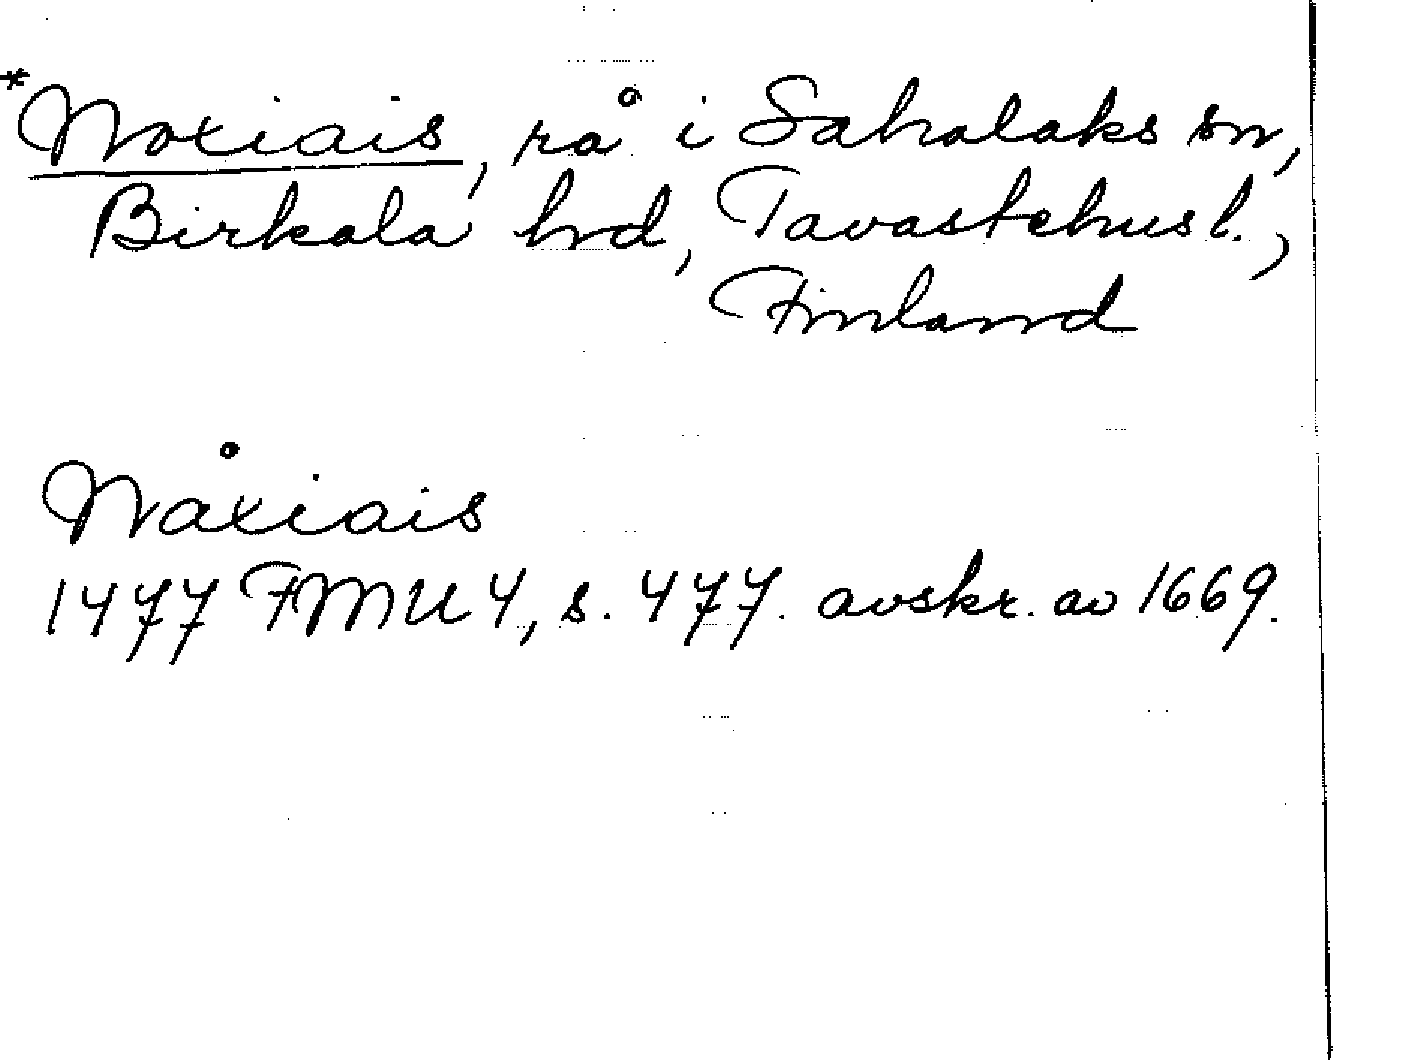 *Noxiais, rå i Sahalaks sn,
Birkala hrd, Tavastehus l.,
Finland
Nåxiais
1477 FMU 4, s. 477. avskr. av 1669.